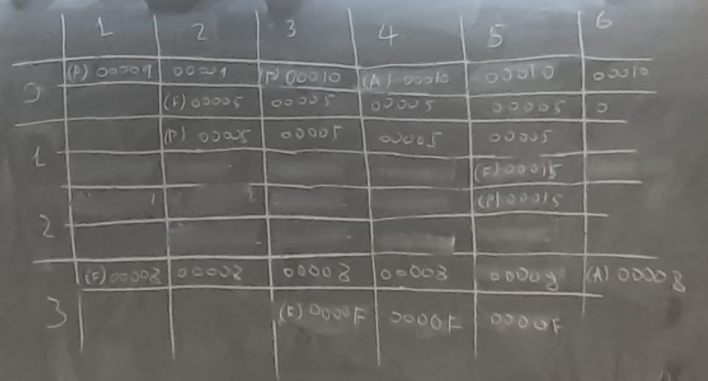 1 2 3 4 5 6
0 (P) 00009 00009 (P) 00010 (A) 00010 00010 00010
(F) 00005 00005 00005 00005 0
1 (P) 00005 00005 00005 00005
(F) 00015
(P) 00015
2
(F) 00008 00008 00008 00008 00008 (A) 00008
3 (F) 0000F 0000F 0000F